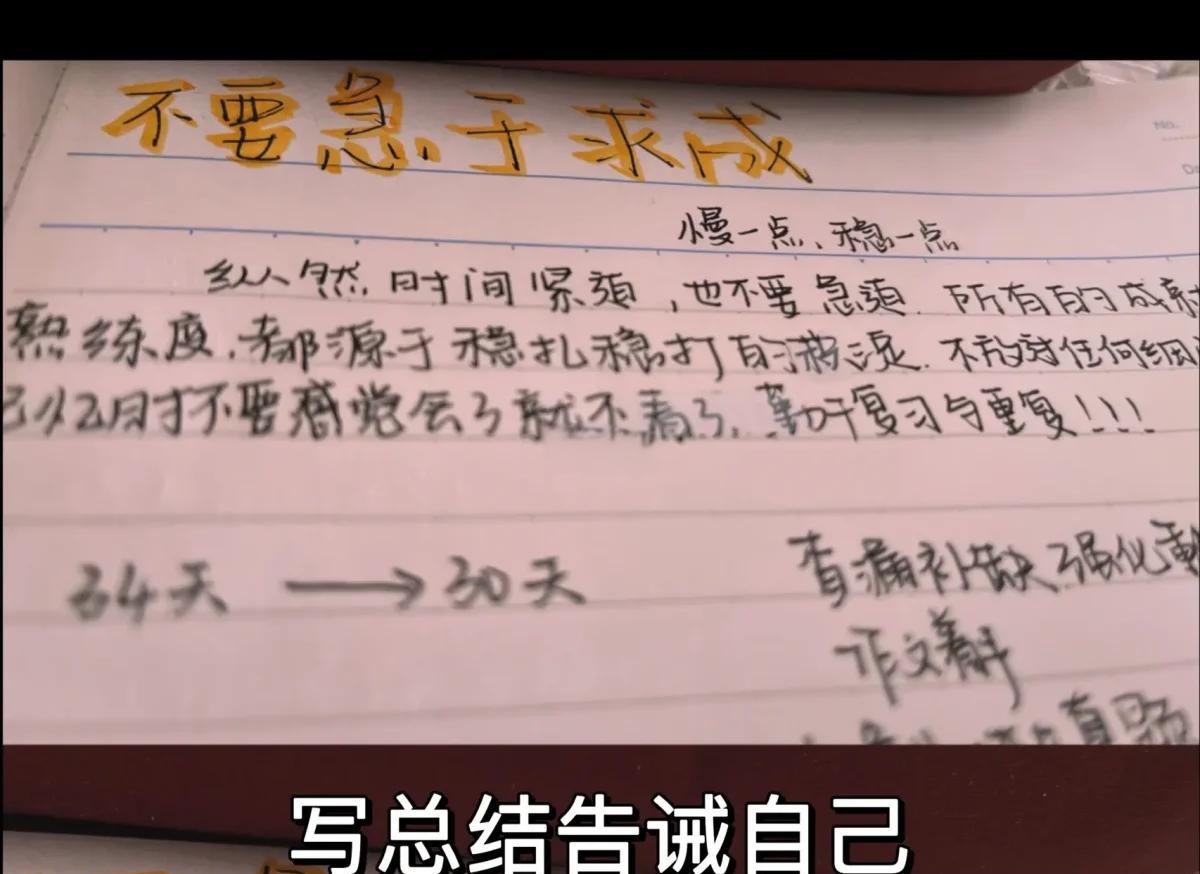 不要急于求成
No.
慢一点、稳一点
纵然时间紧须,也不要急须.所有的成就
熟练度,都源于稳扎稳打的 不放过任何细
时不要感觉会了就不看了,勤于复习与重复!!!
34天 → 30天
查漏补缺、强化
作文素材
真题
写总结告诫自己